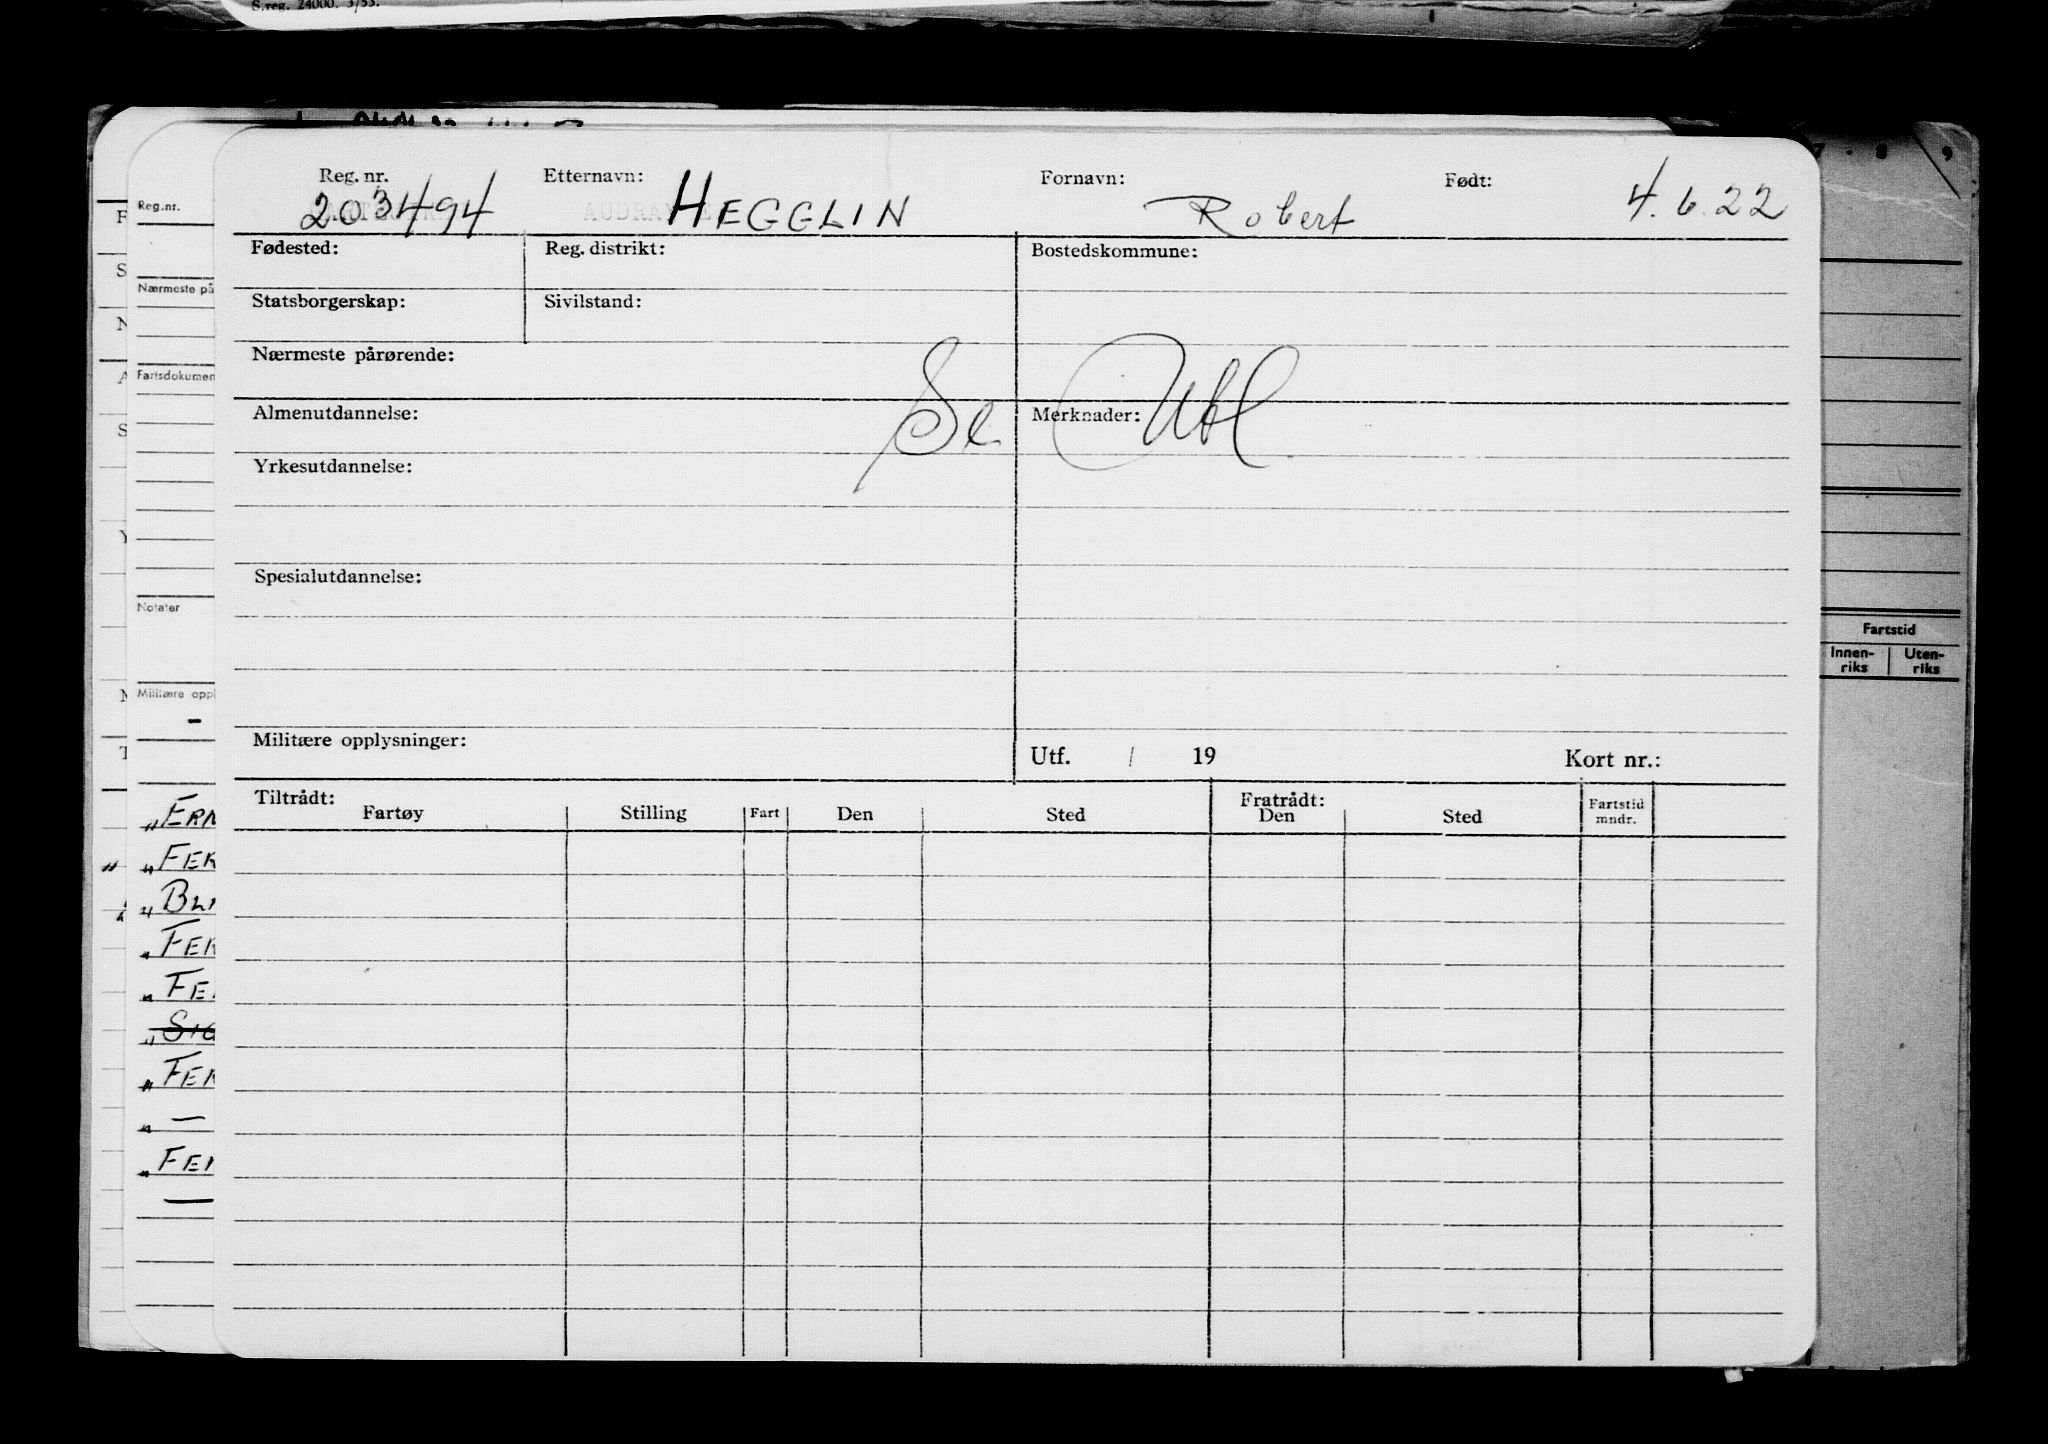 S.reg. 24000. 3/53.
Reg. nr. Etternavn: Fornavn: Født:
203494 HEGGLIN Robert 4.6.22
Fødested: Reg. distrikt: Bostedskommune:
Statsborgerskap: Sivilstand:
Nærmeste pårørende:
Se Utl
Almenutdannelse: Merknader:
Yrkesutdannelse:
Spesialutdannelse:
Militære opplysninger:
Utf. / 19 Kort nr.:
Tiltrådt: Fratrådt:
Fartøy Stilling Fart Den Sted Den Sted Fartstid mndr.
Reg.nr.
Nærmeste på
Fartsdokumen
Notater
Militære oppl
„ FER
„ FER
„ FER
Fartstid
Innen-riks Uten-riks